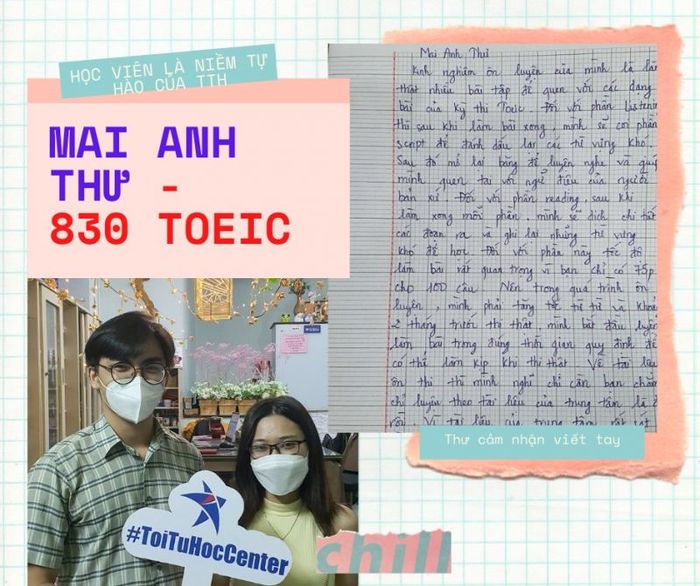 HỌC VIÊN LÀ NIỀM TỰ
HÀO CỦA TTH
MAI ANH
THƯ -
830 TOEIC
Mai Anh Thư
Kinh nghiệm ôn luyện của mình là làm
thật nhiều bài tập để quen với các dạng
bài của kỳ thi Toeic. Đối với phần Listening
thì sau khi làm bài xong, mình sẽ coi phần
script để đánh dấu lại các từ vựng khó.
Sau đó mở lại băng để luyện nghe và giúp
mình quen tai với ngữ điệu của người
bản xứ. Đối với phần reading, sau khi
làm xong mỗi phần, mình sẽ dịch chi tiết
các đoạn ra và ghi lại những từ vựng
khó để học. Đối với phần này tốc độ
làm bài rất quan trọng vì bạn chỉ có 75p
cho 100 câu. Nên trong quá trình ôn
luyện, mình phải tăng tốc từ từ và khoảng
2 tháng trước thi thật mình bắt đầu luyện
làm bài trong đúng thời gian quy định để
có thể làm kịp khi thi thật. Về tài liệu
ôn thi thì mình nghĩ chỉ cần bạn chăm
chỉ luyện theo tài liệu của trung tâm là
rồi. Vì tài liệu của trung tâm rất
Thư cảm nhận viết tay
#ToiTuHocCenter
chill